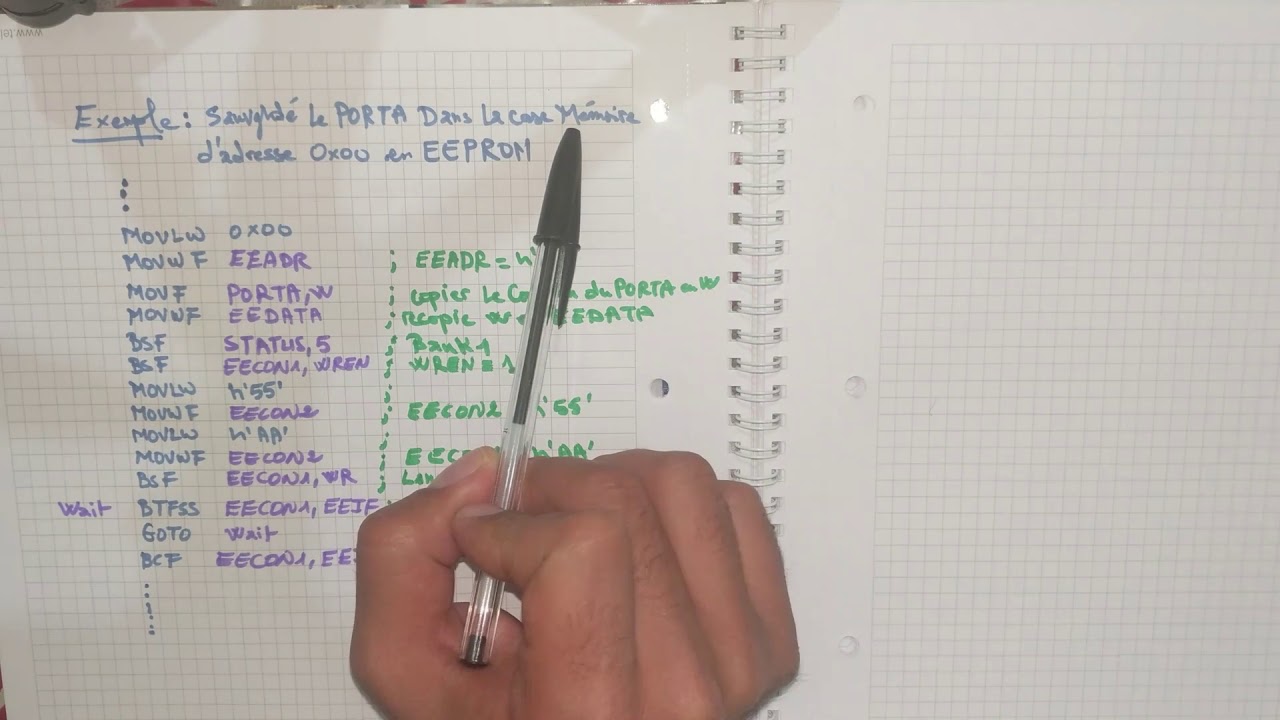 Exemple : Sauvgrdé le PORTA Dans la case Mémoire
d'adresse 0x00 en EEPROM
MOVLW 0x00
MOVWF EEADR ; EEADR = h'
MOVF PORTA, W ; copier le du PORTA en W
MOVWF EEDATA ; recopie W EEDATA
BSF STATUS, 5 ; Bank 1
BSF EECON1, WREN ; WREN = 1
MOVLW h'55'
MOVWF EECON2 ; EECON2 h'55'
MOVLW h'AA'
MOVWF EECON2 ; h'AA'
BSF EECON1, WR ;
Wait BTFSS EECON1, EEIF
GOTO Wait
BCF EECON1,